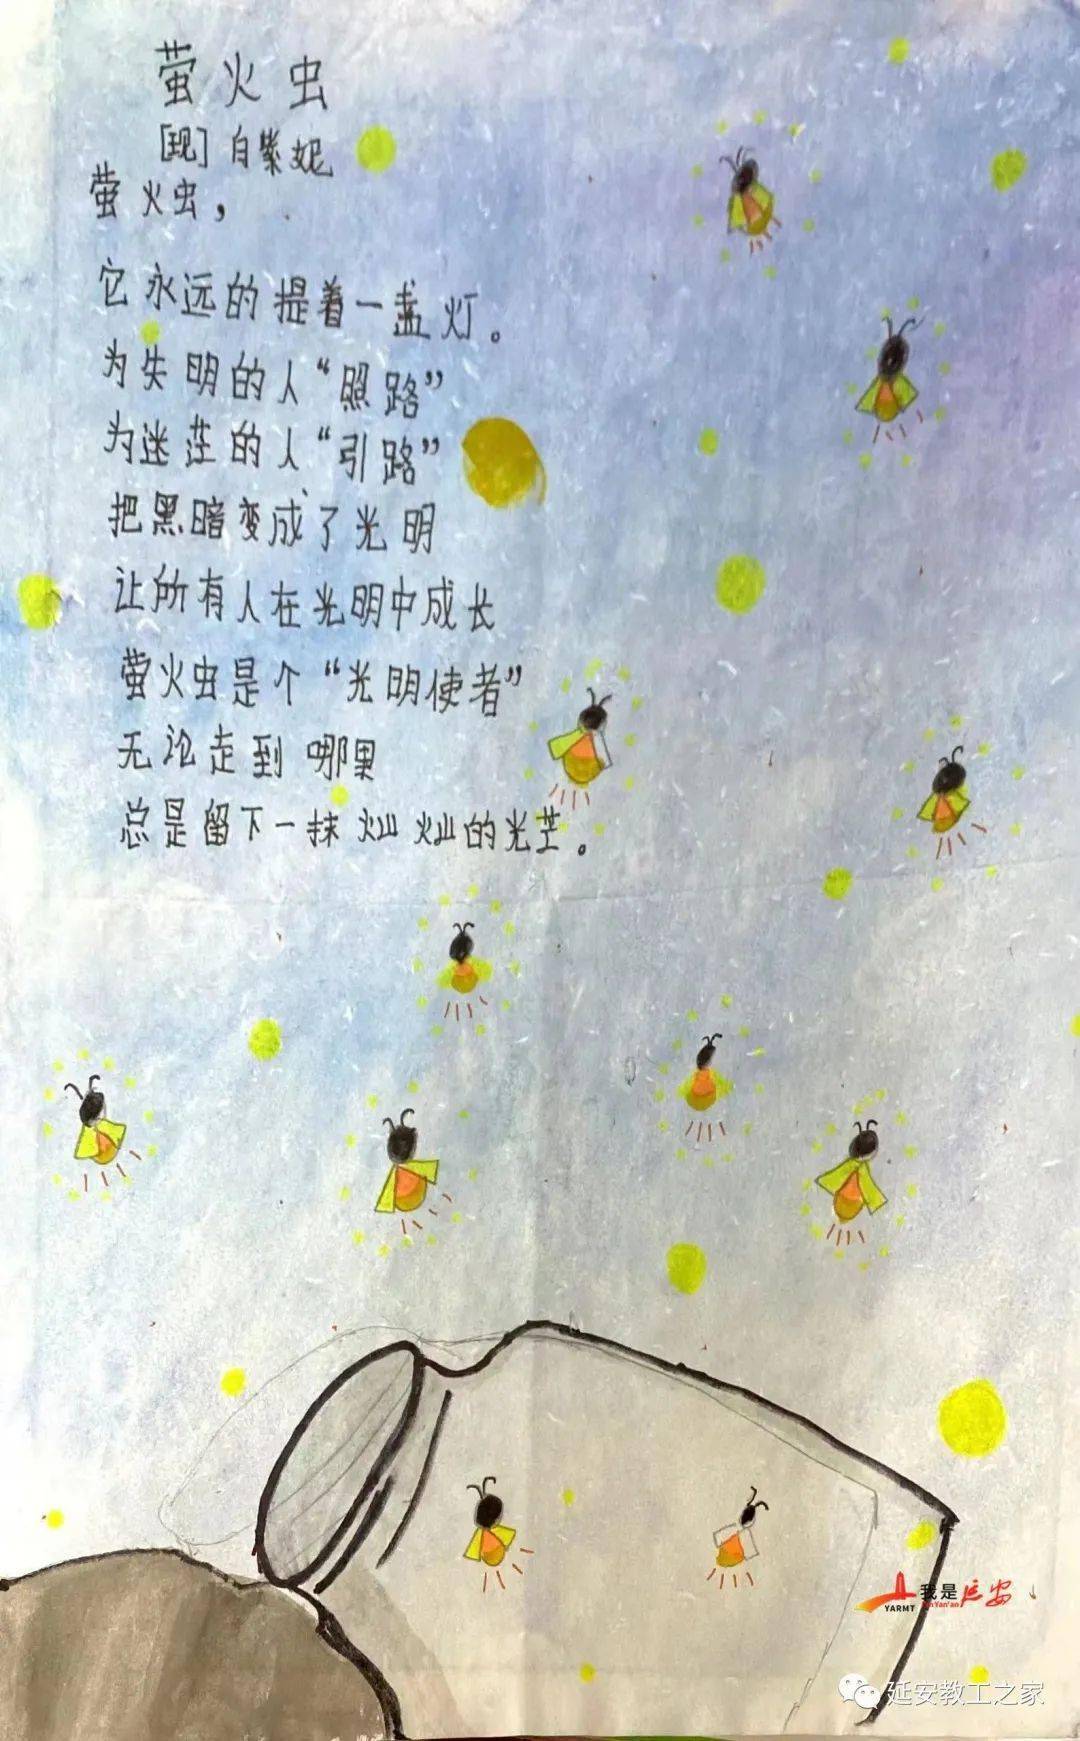 萤火虫
[现] 白紫妮
萤火虫，
它永远的提着一盏灯。
为失明的人“照路”
为迷茫的人“引路”
把黑暗变成了光明
让所有人在光明中成长
萤火虫是个“光明使者”
无论走到哪里
总是留下一抹灿灿的光芒。
YARMT
我是延安
I'm Yan'an
延安教工之家